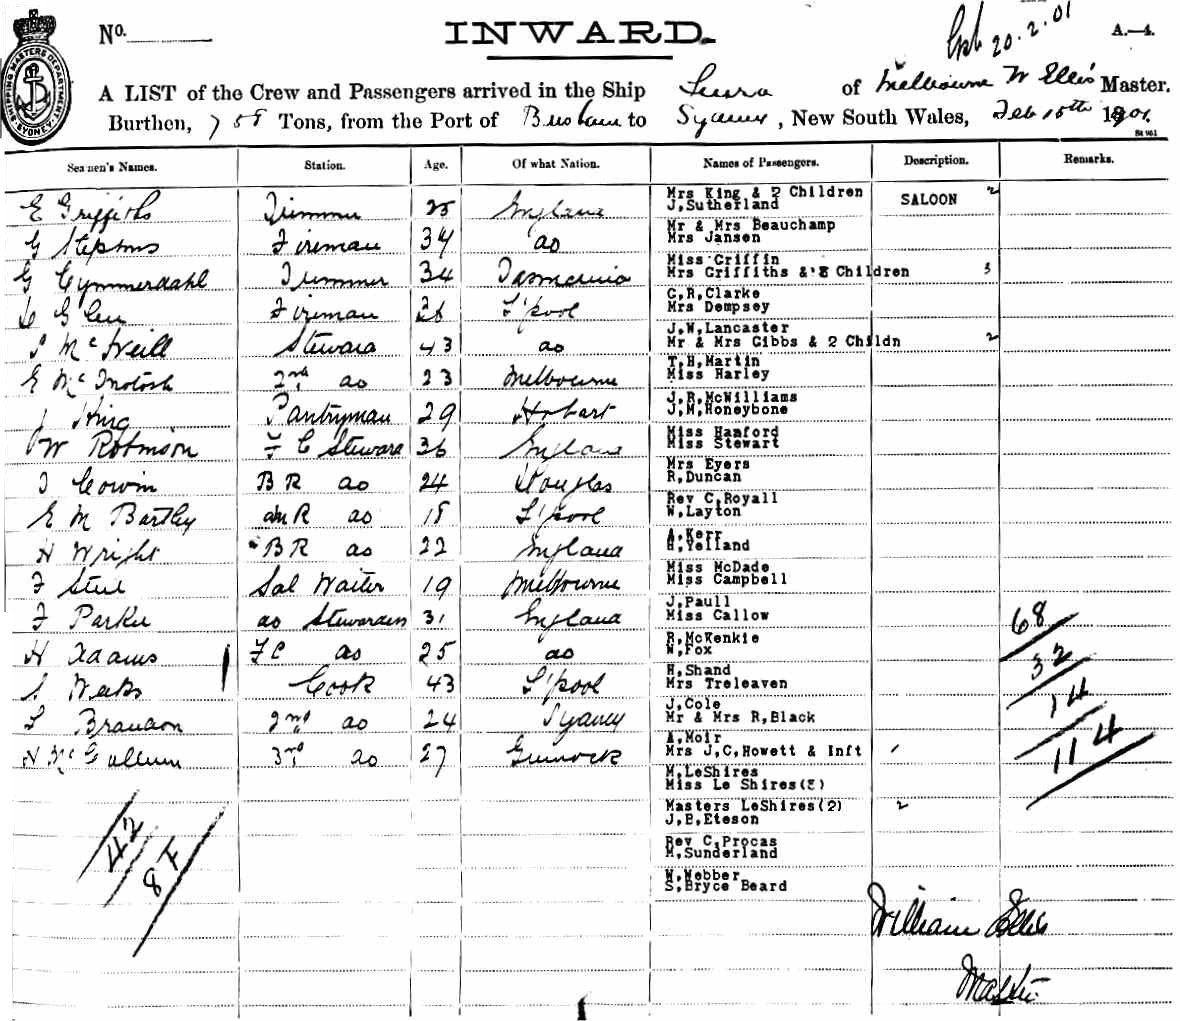 No.
INWARD.
20.2.01
A.—4.
SHIPPING MASTERS DEPARTMENT SYDNEY
A LIST of the Crew and Passengers arrived in the Ship of Melbourne W Ellis Master.
Burthen, Tons, from the Port of to Sydney, New South Wales, Feb 1901
Seamen's Names. Station. Age. Of what Nation. Names of Passengers. Description. Remarks.
E Griffiths Trimmer 25 England Mrs King & 2 Children SALOON 2
J,Sutherland
G Stephens Fireman 34 do Mr & Mrs Beauchamp
Mrs Jansen
G Cymmerdahl Trimmer 34 Tasmania Miss Griffin
Mrs Griffiths & 3 Children 3
Fireman L'pool C,R,Clarke
Mrs Dempsey
McNeill Steward 43 do J,W,Lancaster
Mr & Mrs Gibbs & 2 Childn 2
E McIntosh 2nd do 23 Melbourne T,H,Martin
Miss Harley
J King Pantryman 29 Hobart J,R,McWilliams
J,M,Honeybone
W Robinson F C Steward 36 England Miss Hanford
Miss Stewart
Cowin B R do 24 Douglas Mrs Eyers
R,Duncan
E M Bartley do 18 L'pool Rev C,Royall
W,Layton
H Wright B R do 22 England A,Kerr
H,Yelland
F Steel Sal Waiter 19 Melbourne Miss McDade
Miss Campbell
F Parker do Stewardess 31 England J,Paull
Miss Callow
68
H Adams F C do 25 do R,McKenkie
W,Fox
32
Weeks Cook 43 L'pool H,Shand
Mrs Treleaven
14
Brandon 2nd do 24 Sydney J,Cole
Mr & Mrs R,Black
114
H McCallum 3rd do 27 Greenock A,Moir
Mrs J,C,Howett & Inft
M,LeShires
Miss Le Shires
Masters LeShires(2) 2
J,B,Eteson
42
8 F
Rev C,Procas
M,Sunderland
W,Webber
S,Bryce Beard
William Ellis
Master